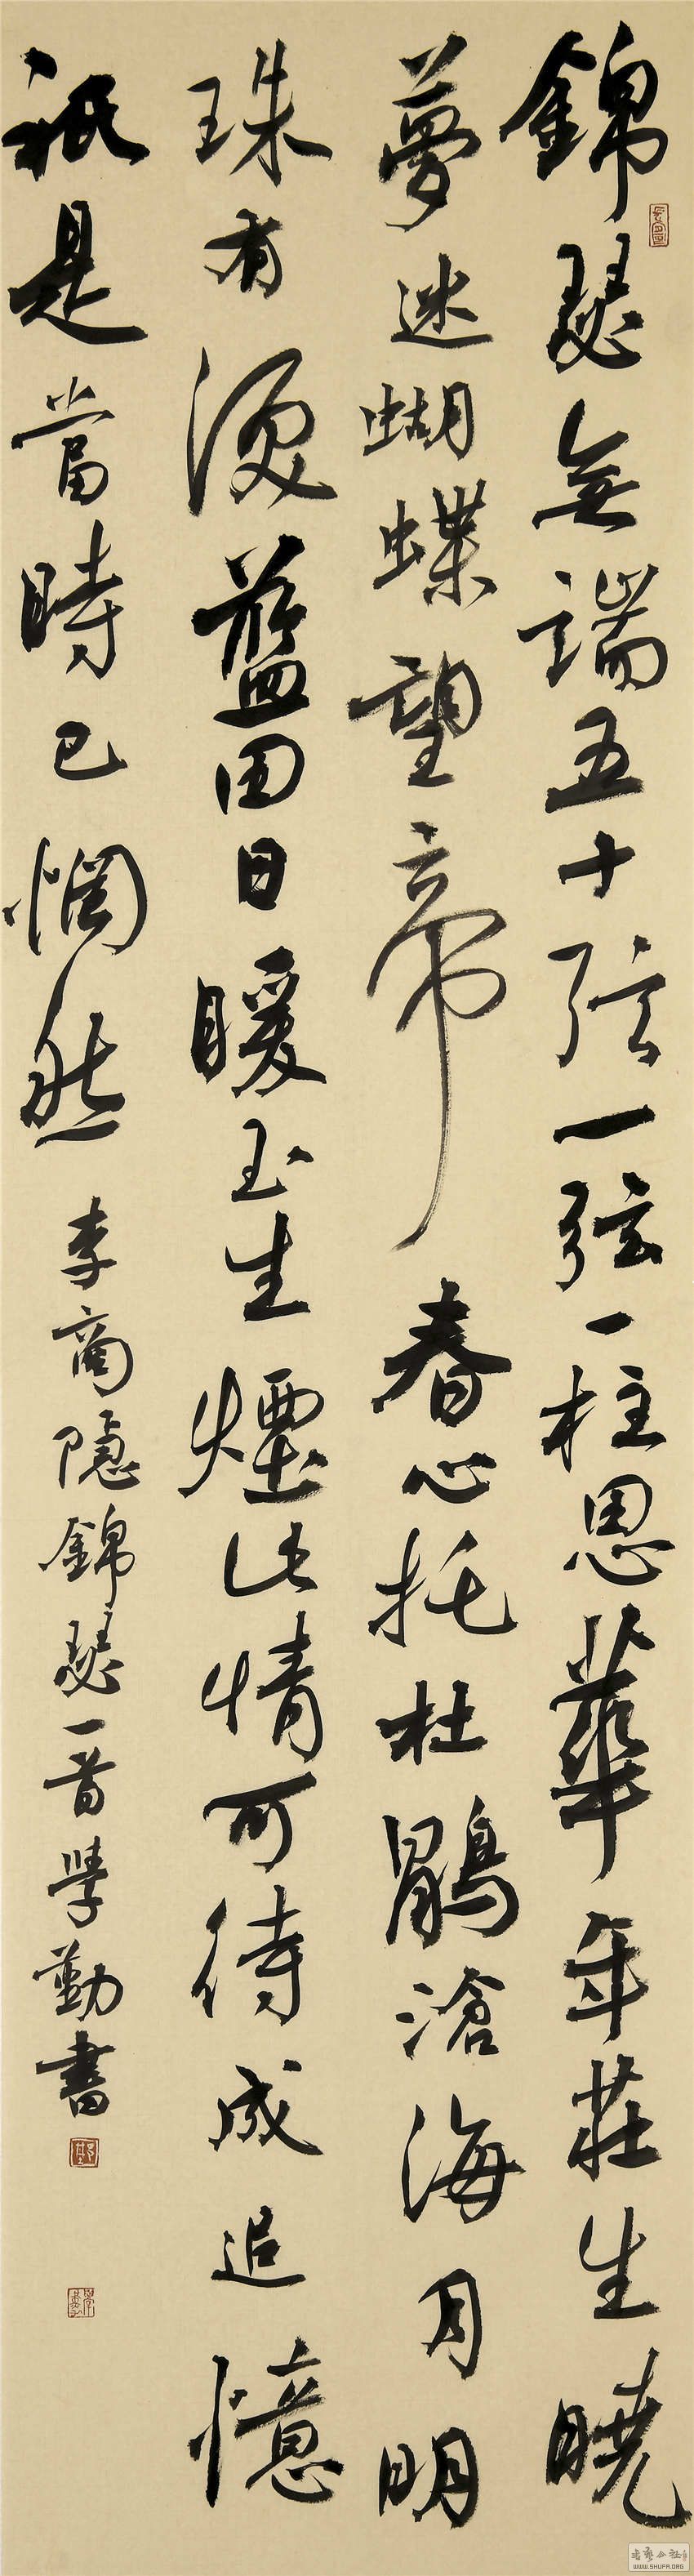 錦瑟無端五十弦一弦一柱思華年莊生曉
夢迷蝴蝶望帝春心托杜鵑滄海月明
珠有淚藍田日暖玉生煙此情可待成追憶
祇是當時已惘然 李商隱錦瑟一首學勤書
WWW.SHUFA.ORG